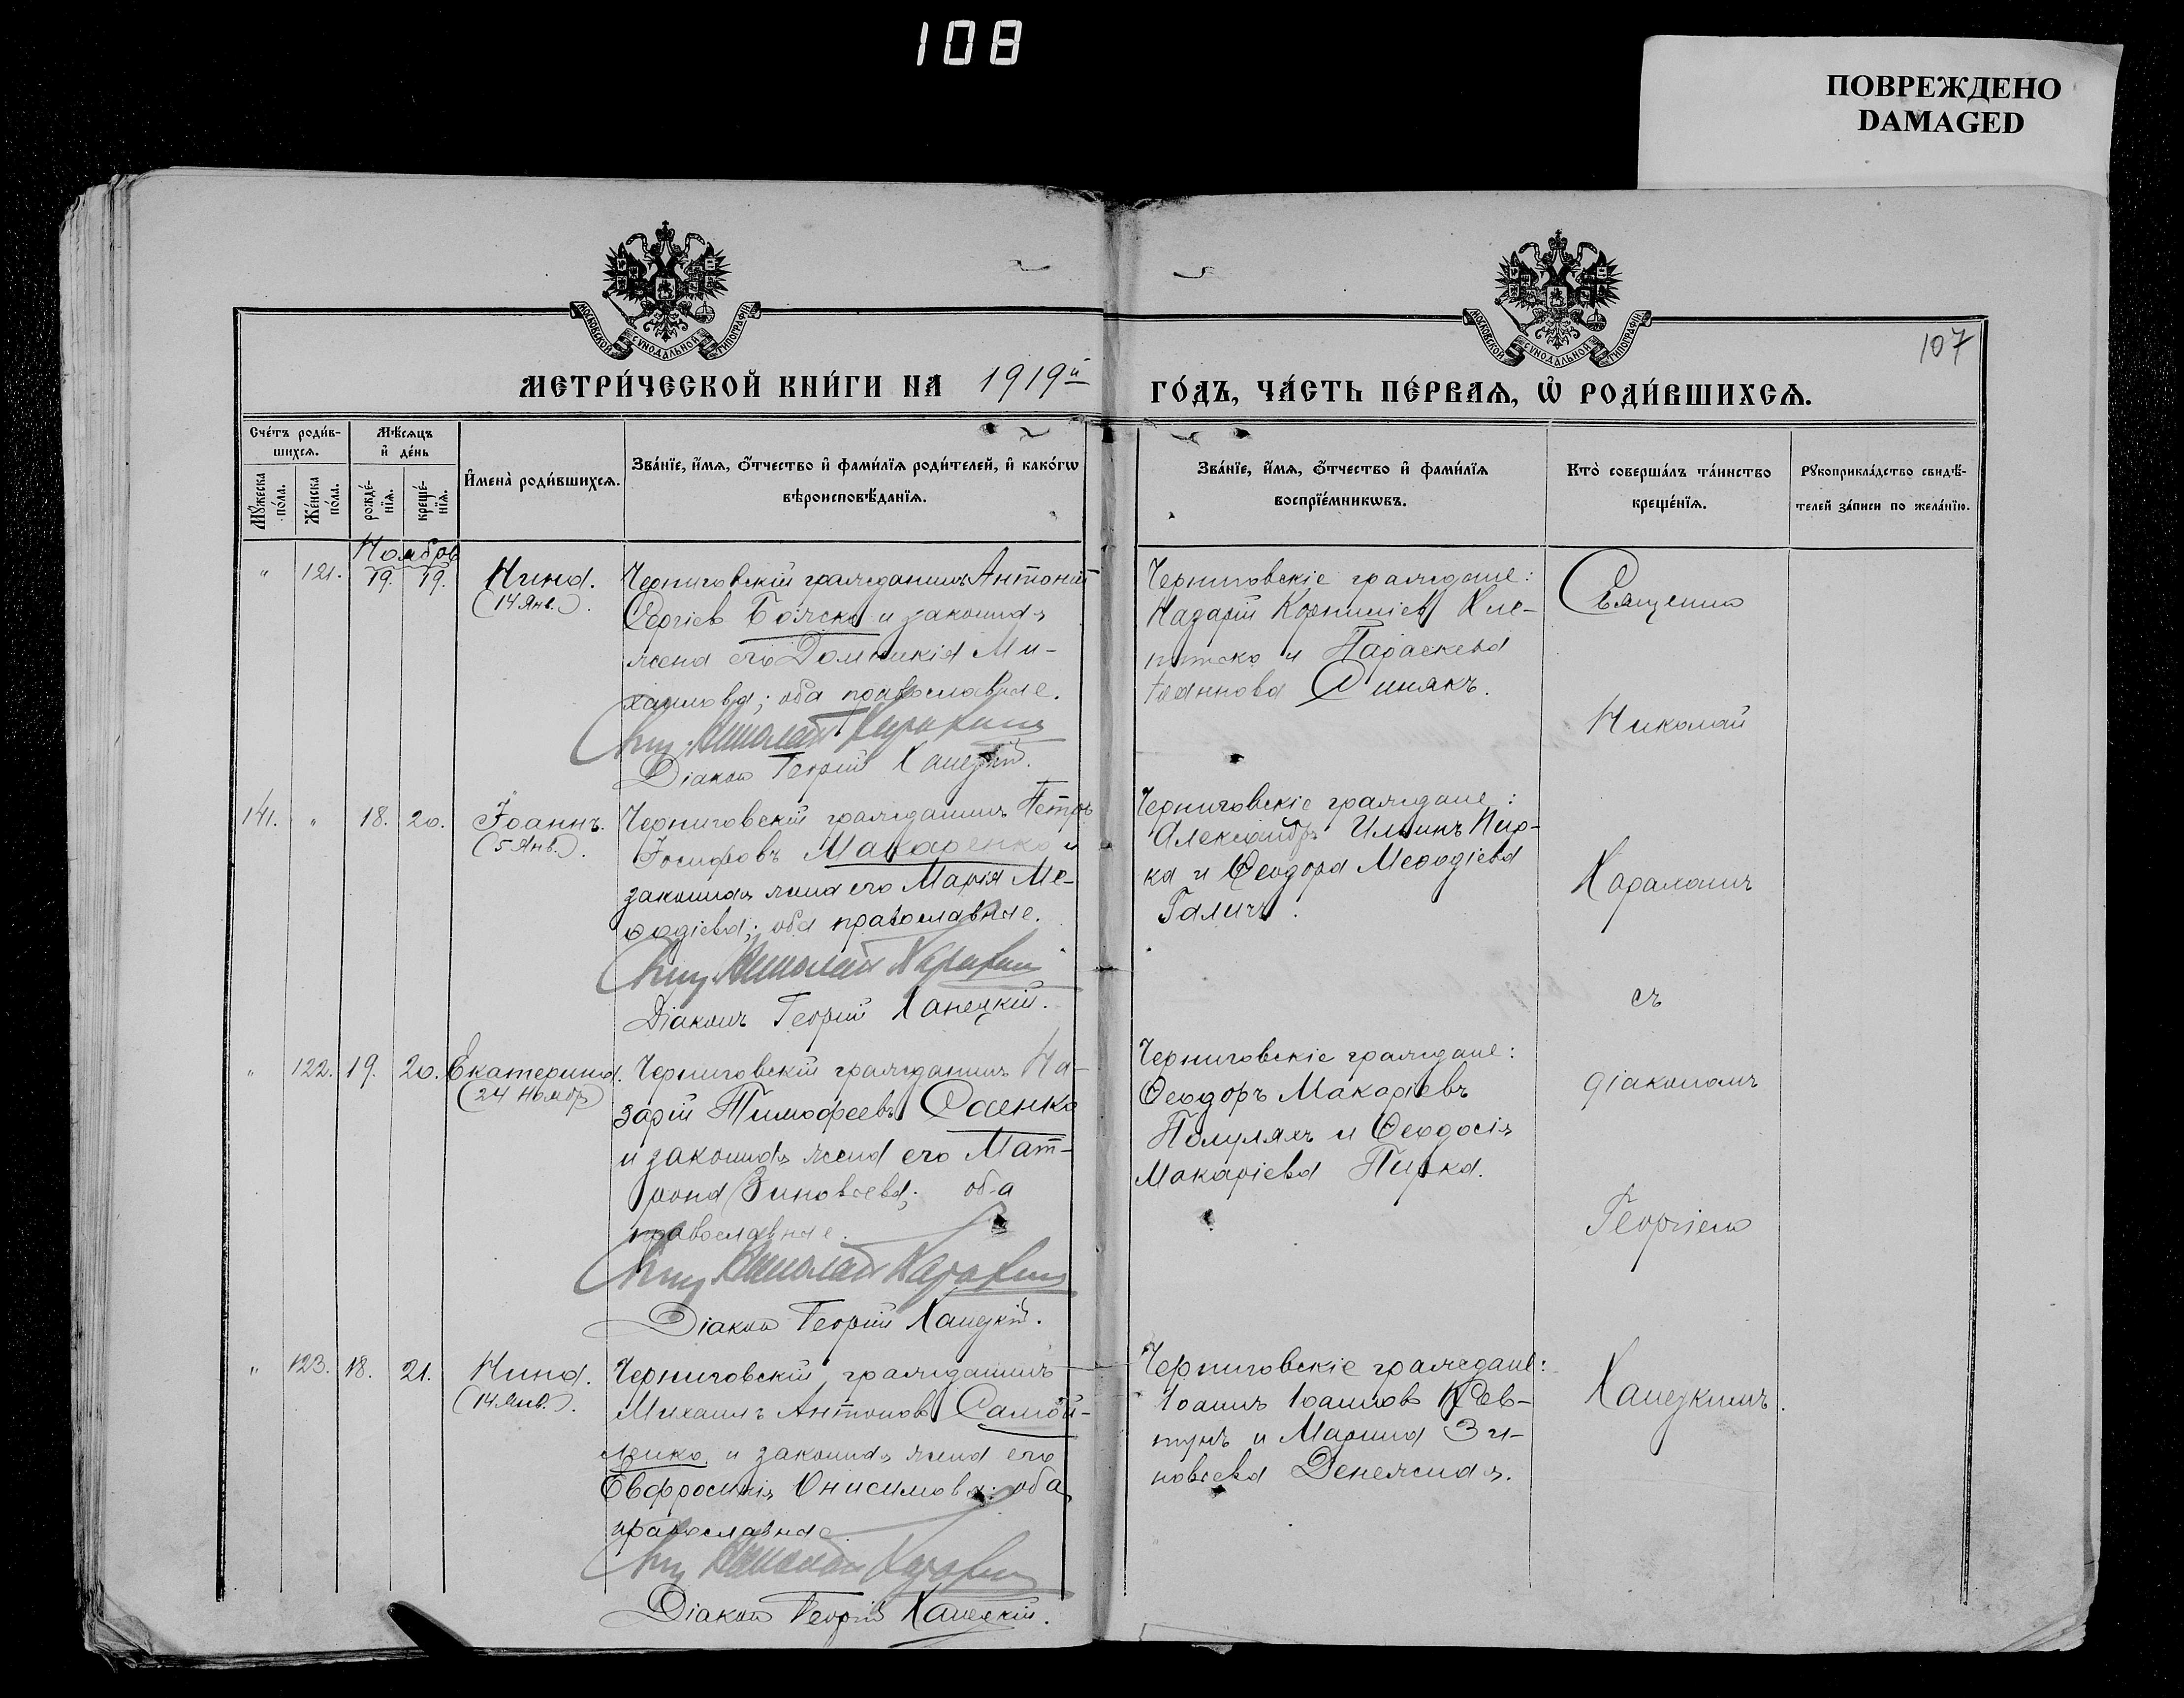 108
ПОВРЕЖДЕНО
DAMAGED
МОСКОВСКОЙ СѴНОДАЛЬНОЙ ТИПОГРАФІИ
МОСКОВСКОЙ СѴНОДАЛЬНОЙ ТИПОГРАФІИ
107
МЕТРИ́ЧЕСКОЙ КНИ́ГИ НА 1919й
ГО́ДЪ, ЧА́СТЬ ПЕ́РВАЯ, Ѡ РОДИ́ВШИХСѦ.
Сче́тъ роди́в-
шихсѧ.
Мꙋжеска
по́ла.
Же́нска
по́ла.
Мѣ́сѧцъ
и де́нь
рожде́-
нїѧ.
креще́-
нїѧ.
Имена̀ роди́вшихсѧ.
Зва́нїе, и́мѧ, ѻ́тчество и фами́лїѧ роди́телей, и како́гѡ
вѣроисповѣ́данїѧ.
Зва́нїе, и́мѧ, ѻ́тчество и фами́лїѧ
воспрїе́мникѡвъ.
Кто̀ соверша́лъ та́инство
креще́нїѧ.
Рꙋкоприкла́дство свидѣ́-
телей за́писи по жела́нїю.
Ноябрь
" 121. 19. 19. Нина.
(14 Янв.).
Черниговскій гражданинъ Антоній
Сергіев Боярско и законная
жена его Домникія Ми-
хаилова; оба православные.
Свящ. Николай
Діакон Георгій Ханецкій.
Черниговскіе граждане:
Назарій Корниліев
и Параскева
Іоаннова Синякъ.
141. " 18. 20. Іоаннъ.
(5 Янв.).
Черниговскій гражданинъ Петръ
Іосифовъ Макаренко и
законная жена его Марія Ме-
ѳодіева; оба православные.
Свящ. Николай
Діаконъ Георгій Ханецкій.
Черниговскіе граждане:
Александръ Ильинъ Пир-
ка и Ѳеодора Меѳодіева
Галичъ.
" 122. 19. 20. Екатерина.
(24 Ноябр.)
Черниговскій гражданинъ На-
зарій Тимофеевъ Саенко
и законная жена его Мат-
рона Зиновьева; оба
православные.
Свящ. Николай
Діакон Георгій Ханецкій.
Черниговскіе граждане:
Ѳеодоръ Макаріевъ
Полулях и Ѳеодосія
Макаріева Пирка.
" 123. 18. 21. Нина.
(14 Янв.).
Черниговскій гражданинъ
Михаилъ Антонов Самой-
ленко и законная жена его
Евфросинія Онисимова; оба
православные
Свящ. Николай
Діакон Георгій Ханецкій.
Черниговскіе граждане:
Іоаннъ Іоаннов Рев-
тунъ и Марина Зи-
новьева Денежная.
Священно
Николай
съ
діакономъ
Георгіемъ
Ханецкимъ.